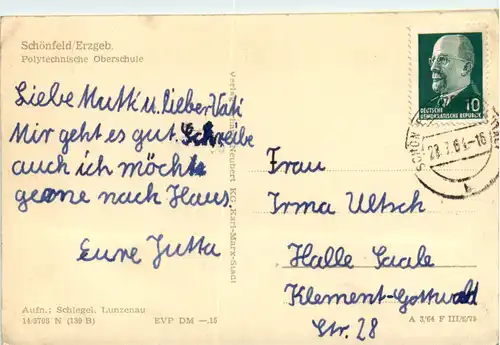 Schönfeld/Erzgeb.
Polytechnische Oberschule
Liebe Mutti u. lieber Vati
Mir geht es gut. Schreibe
auch ich möcht
gerne nach Haus.
Eure Jutta
Aufn.: Schlegel, Lunzenau
14/5765 N (139 B) EVP DM —.15
Neubert KG · Karl-Marx-Stadt
10
DEUTSCHE
DEMOKRATISCHE REPUBLIK
Frau
Irma Ultsch
Halle Saale
Klement-Gottwald
Str. 28
A 3/64 F III/6/75